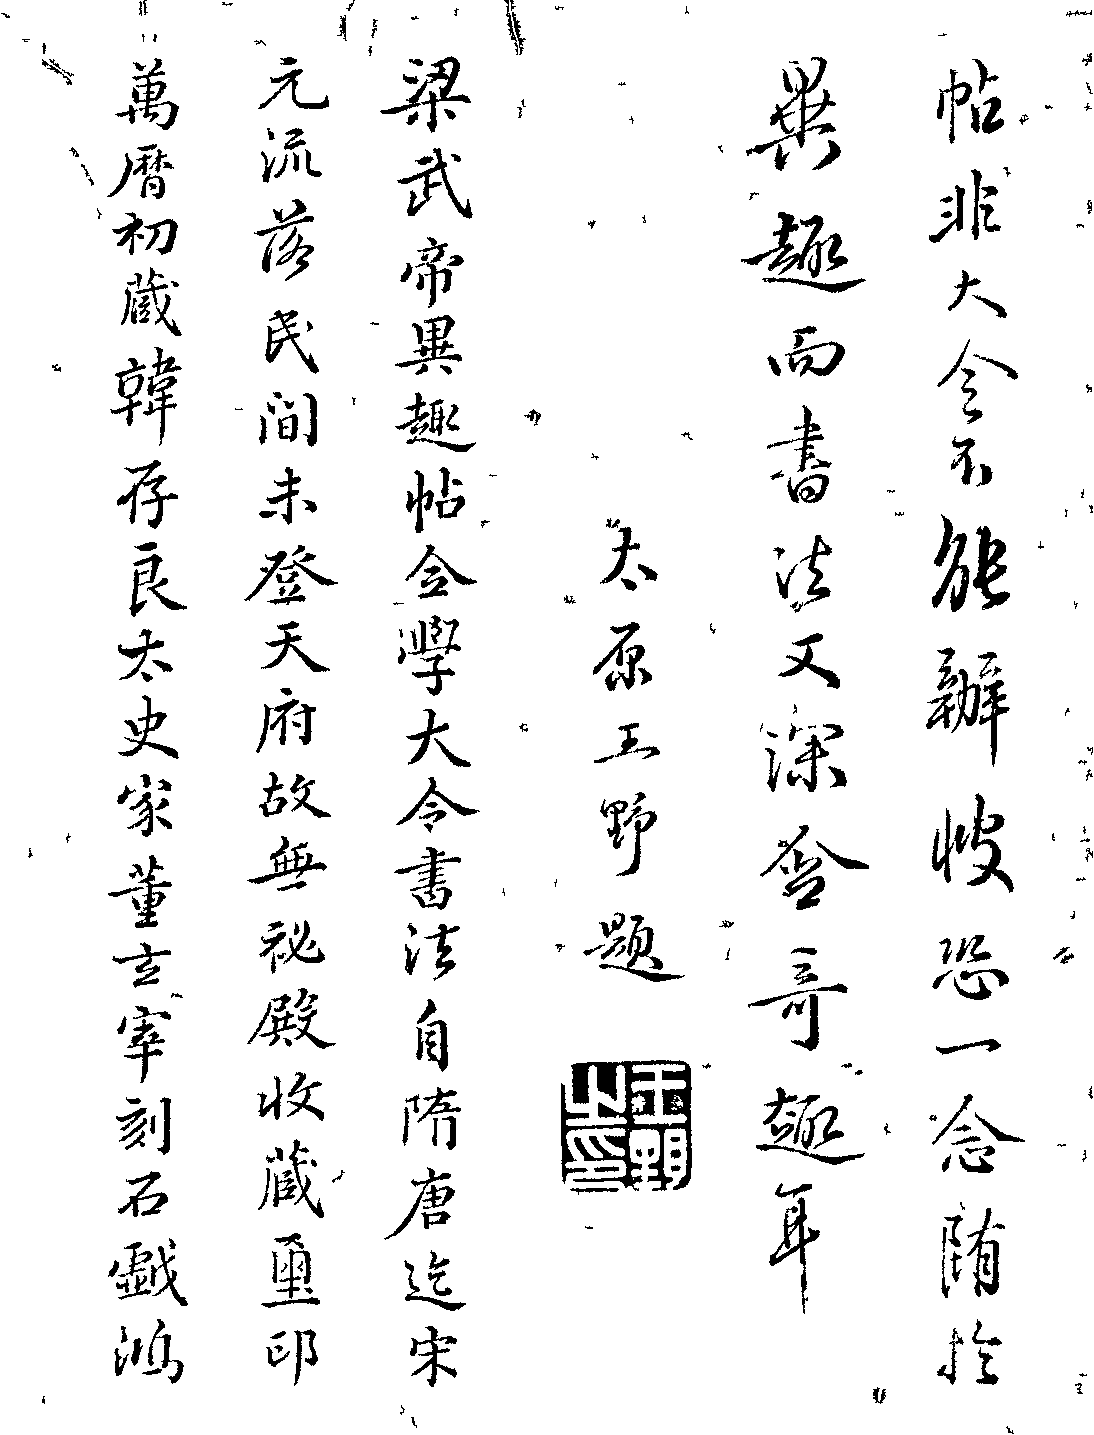 帖非大令不能辦恐一念随於
異趣而書法又深含奇趣耳
太原王野題
梁武帝異趣帖全學大令書法自隋唐迄宋
元流落民間未登天府故無祕殿收蔵璽印
萬曆初蔵韓存良太史家董玄宰刻石戲鴻